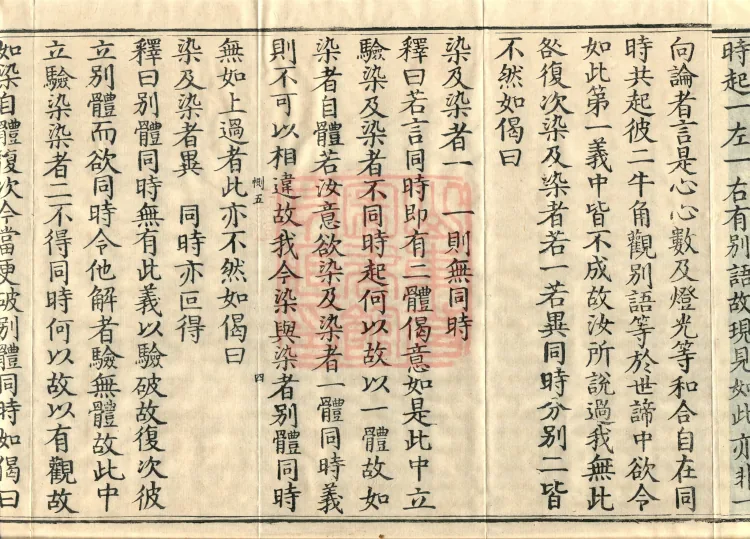 時起一左一右有別語故現見如此亦非一
向論者言是心心數及燈光等和合自在同
時共起彼二牛角觀別語等於世諦中欲令
如此第一義中皆不成故汝所說過我無此
咎復次染及染者若一若異同時分別二皆
不然如偈曰
染及染者一　一則無同時
釋曰若言同時即有二體偈意如是此中立
驗染及染者不同時起何以故以一體故如
染者自體若汝意欲染及染者一體同時義
則不可以相違故我今染與染者別體同時
惻五　四
無如上過者此亦不然如偈曰
染及染者異　同時亦叵得
釋曰別體同時無有此義以驗破故復次彼
立別體而欲同時令他解者驗無體故此中
立驗染染者二不得同時何以故以有觀故
如染自體復次今當更破別體同時如偈曰